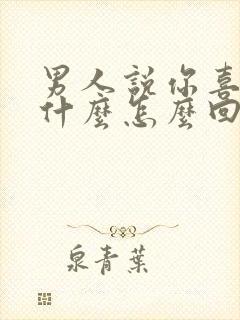 男人說你喜
什麼怎麼回
泉青葉